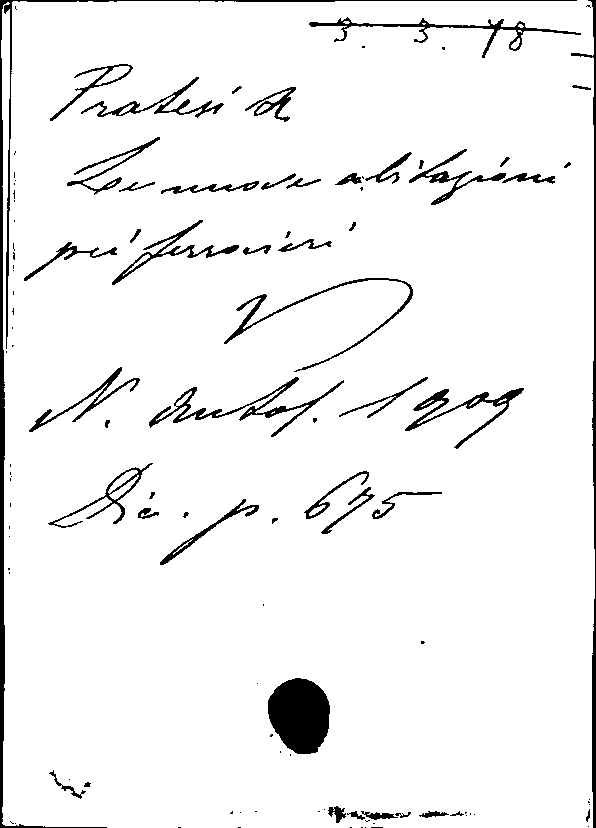 3. 3. 78
Pratesi R
Le nuove abitazioni
pei ferrovieri
N. Antol. 1909
Dic. p. 675